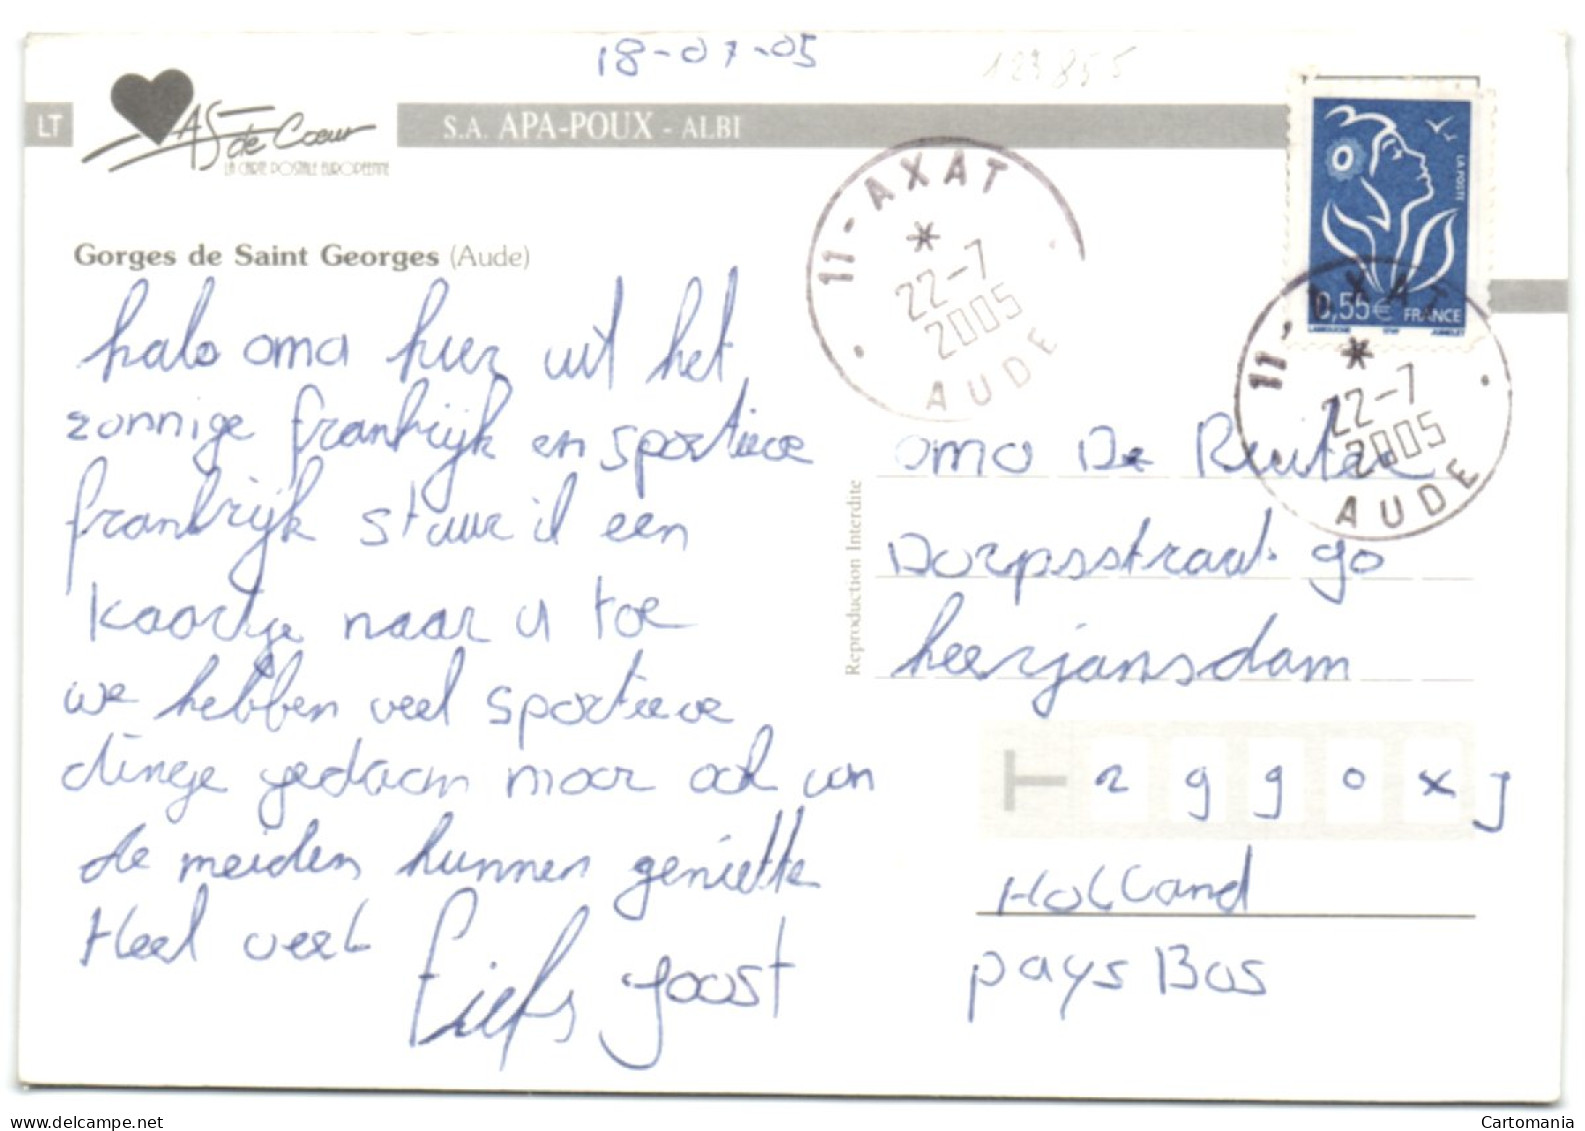 18-07-05
123855
LT
As de Coeur
LA CARTE POSTALE EUROPEENNE
S.A. APA-POUX - ALBI
Gorges de Saint Georges (Aude)
halo oma hier uit het
zonnige frankrijk en sportieve
frankrijk stuur il een
kaartje naar u toe
we hebben veel sportieve
dinge gedaan maar ook van
de meiden kunnen geniette
Heel veel
liefs Joost
Reproduction Interdite
11-AXAT
*
22-7
2005
AUDE
LA POSTE
0,55€ FRANCE
LAMOUCHE ITVF JUMELET
11-AXAT
*
22-7
2005
AUDE
oma De Ruiter
Dorpsstraat 90
heerjansdam
T 2990XJ
Holland
pays Bas
Cartomania